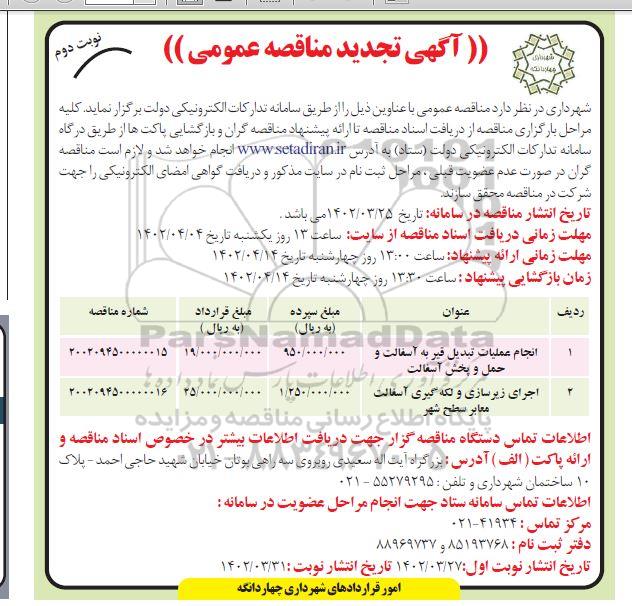 نوبت دوم
(( آگهی تجدید مناقصه عمومی ))
شهرداری
چهاردانگه
شهرداری در نظر دارد مناقصه عمومی با عناوین ذیل را از طریق سامانه تدارکات الکترونیکی دولت برگزار نماید. کلیه
مراحل بارگزاری مناقصه از دریافت اسناد مناقصه تا ارائه پیشنهاد مناقصه گران و بازگشایی پاکت ها از طریق درگاه
سامانه تدارکات الکترونیکی دولت (ستاد) به آدرس www.setadiran.ir انجام خواهد شد و لازم است مناقصه
گران در صورت عدم عضویت قبلی، مراحل ثبت نام در سایت مذکور و دریافت گواهی امضای الکترونیکی را جهت
شرکت در مناقصه محقق سازند.
تاریخ انتشار مناقصه در سامانه: تاریخ ۱۴۰۲/۰۳/۲۵ می باشد .
مهلت زمانی دریافت اسناد مناقصه از سایت: ساعت ۱۳ روز یکشنبه تاریخ ۱۴۰۲/۰۴/۰۴
مهلت زمانی ارائه پیشنهاد: ساعت ۱۳:۰۰ روز چهارشنبه تاریخ ۱۴۰۲/۰۴/۱۴
زمان بازگشایی پیشنهاد : ساعت ۱۳:۳۰ روز چهارشنبه تاریخ ۱۴۰۲/۰۴/۱۴
ردیف عنوان مبلغ سپرده (به ریال) مبلغ قرارداد (به ریال) شماره مناقصه
۱ انجام عملیات تبدیل قیر به آسفالت و حمل و پخش آسفالت ۹۵۰/۰۰۰/۰۰۰ ۱۹/۰۰۰/۰۰۰/۰۰۰ ۲۰۰۲۰۹۴۵۰۰۰۰۰۰۱۵
۲ اجرای زیرسازی و لکه گیری آسفالت معابر سطح شهر ۱/۲۵۰/۰۰۰/۰۰۰ ۲۵/۰۰۰/۰۰۰/۰۰۰ ۲۰۰۲۰۹۴۵۰۰۰۰۰۰۱۶
ParsNamadData
پایگاه اطلاع رسانی مناقصه و مزایده
اطلاعات تماس دستگاه مناقصه گزار جهت دریافت اطلاعات بیشتر در خصوص اسناد مناقصه و
ارائه پاکت ( الف ) آدرس : بزرگراه آیت اله سعیدی روبروی سه راهی بوتان خیابان شهید حاجی احمد - پلاک
۱۰ ساختمان شهرداری و تلفن : ۵۵۲۷۹۲۹۵ - ۰۲۱
اطلاعات تماس سامانه ستاد جهت انجام مراحل عضویت در سامانه :
مرکز تماس : ۴۱۹۳۴-۰۲۱
دفتر ثبت نام : ۸۵۱۹۳۷۶۸ و ۸۸۹۶۹۷۳۷
تاریخ انتشار نوبت اول:۱۴۰۲/۰۳/۲۷ تاریخ انتشار نوبت :۱۴۰۲/۰۳/۳۱
امور قراردادهای شهرداری چهاردانگه